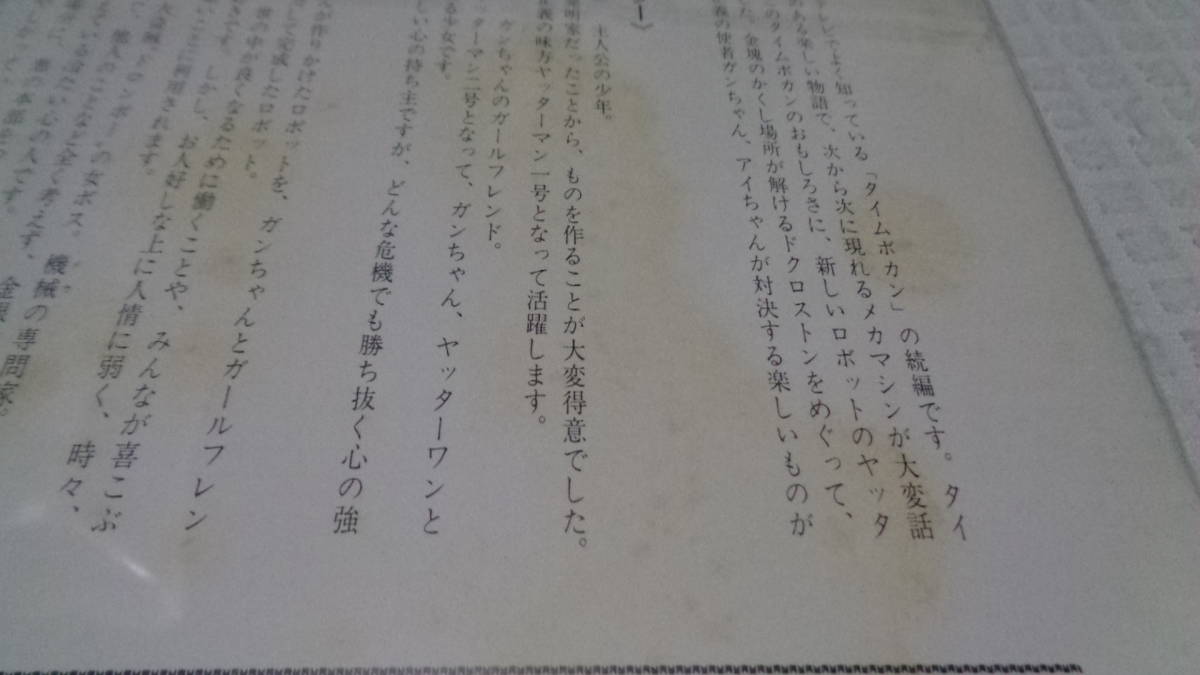 てよく知っている「タイムボカン」の続編です。タイ
のある楽しい物語で、次から次に現れるメカマシンが大変話
のタイムボカンのおもしろさに、新しいロボットのヤッタ
た。金塊のかくし場所が解けるドクロストンをめぐって、
の使者ガンちゃん、アイちゃんが対決する楽しいものが
ー〉
主人公の少年。
発明家だったことから、ものを作ることが大変得意でした。
正義の味方ヤッターマン一号となって活躍します。
ガンちゃんのガールフレンド。
ッターマン二号となって、ガンちゃん、ヤッターワンと
る少女です。
しい心の持ち主ですが、どんな危機でも勝ち抜く心の強
が作りかけたロボットを、ガンちゃんとガールフレン
して完成したロボット。
世の中が良くなるために働くことや、みんなが喜こぶ
です。しかし、お人好しな上に人情に弱く、時々、
ことに利用されます。
ドロンボー"の女ボス。機械の専問家。
て、他人のことなど全く考えず、金銀
ている冷たい心の人です。